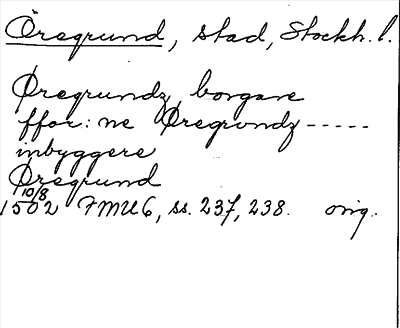 Öregrund, stad, Stockh. l.
Øregrundz borgare
ffor: ne Øregrvndz -----
inbyggere
Øregrund
10/8
1502 FMU 6, ss. 237, 238. orig.